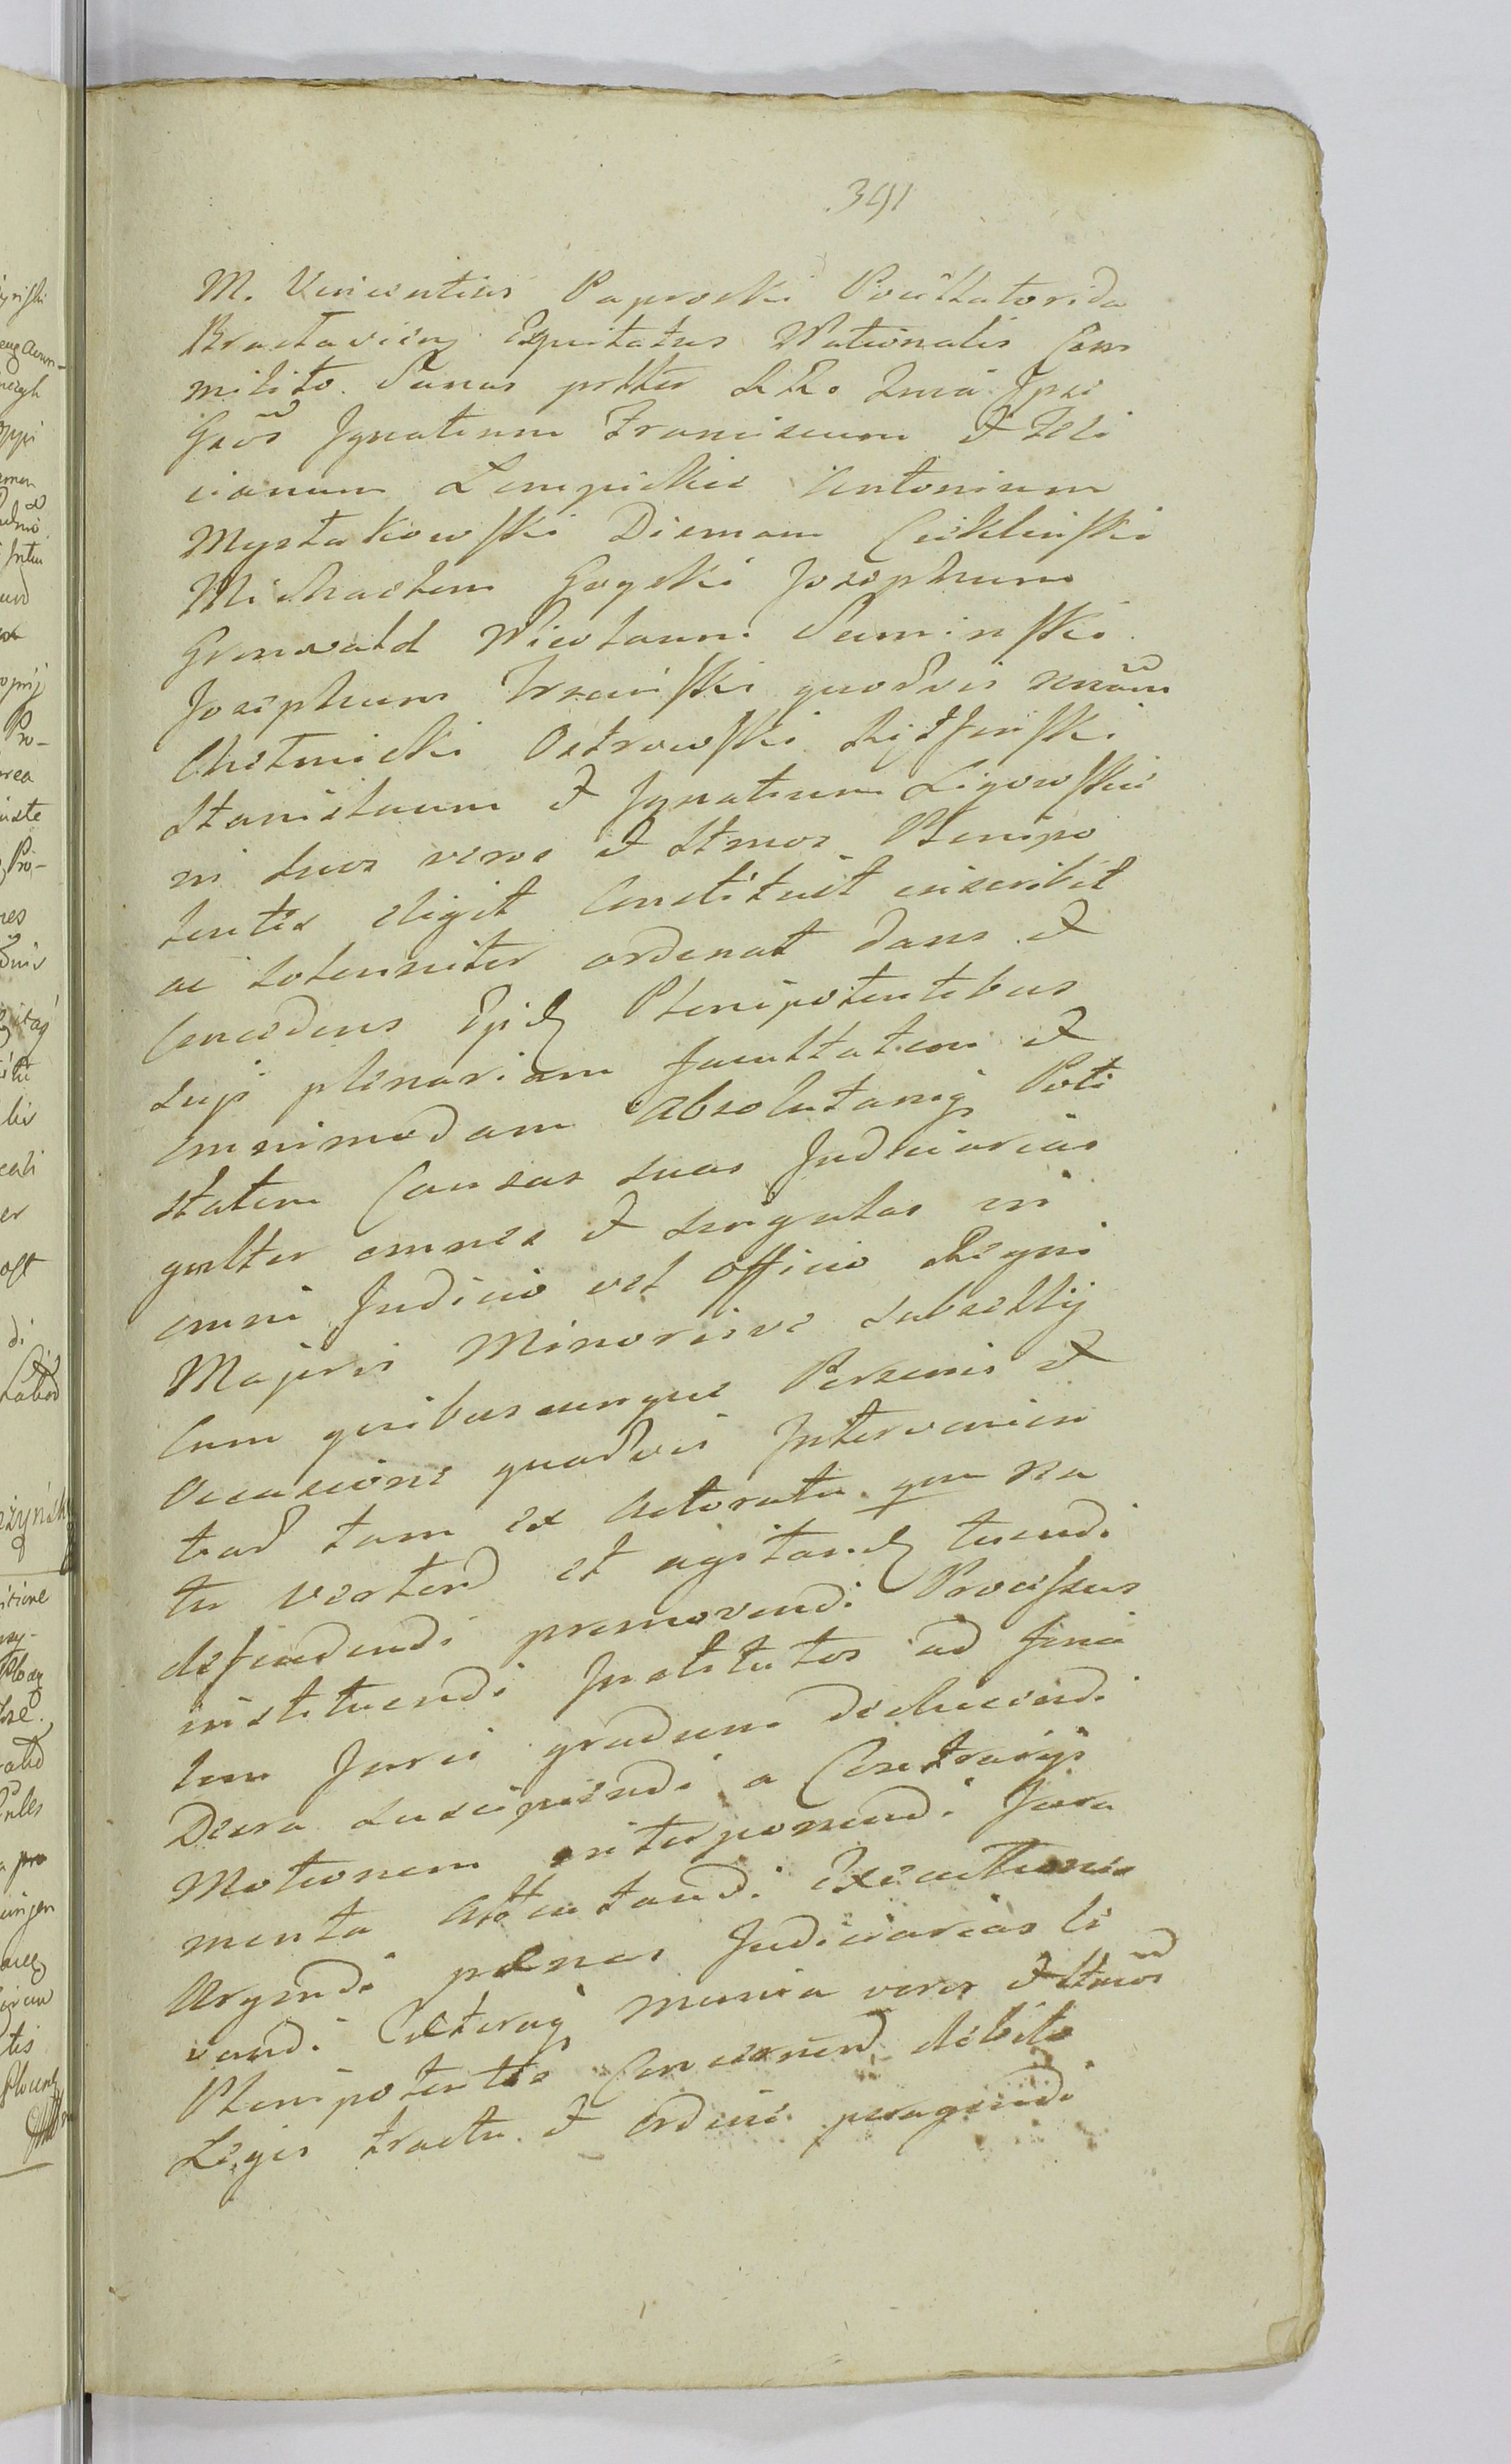 391
M. Vincentius Paprocki Pocillatorida
Braclavien Equitatus Nationalis Com
milito. Sanus
Gsos Ignatium Franciscum et Feli
cianum Lempickie Antonium
Mystakowski Dismam Cieklinski
Michaelem Gogski Josephum
Grunwald Nicolaum Suminski
Josephum quodvis
Chelmicki Ostrowski
Stanislaum et Ignatium Ligowskie
ni suos veros et Ltmos Plenipo
tentes eligit Constituit inscribit
ac solenniter ordinat dans et
Concedens Plenipotentibus
suis plenariam facultatem et
omnimodam absolutamq Pote
statem Causas suas Judiciarias
gnlter omnes et singulas in
omni Judicio vel Officio Regni
Majoris Minorisve subsellij
Cum quibuscunque Personis et
Occasione quadvis Intervenien
tend tam ex Actoratu qm Rea
tu vertend et agitand tuendi
defendendi promovendi Processus
instituendi Institutos ad fina
lem Juris gradum deducendi
Decra suscipiendi a Contrarijs
Motionem interponendi Jura
menta Attentandi Executiones
Urgendi pænas Judiciarias le
vandi Cæteraq munia veros et Ltmos
Plenipotentes Concernend debito
Legis tractu et ordine peragendi